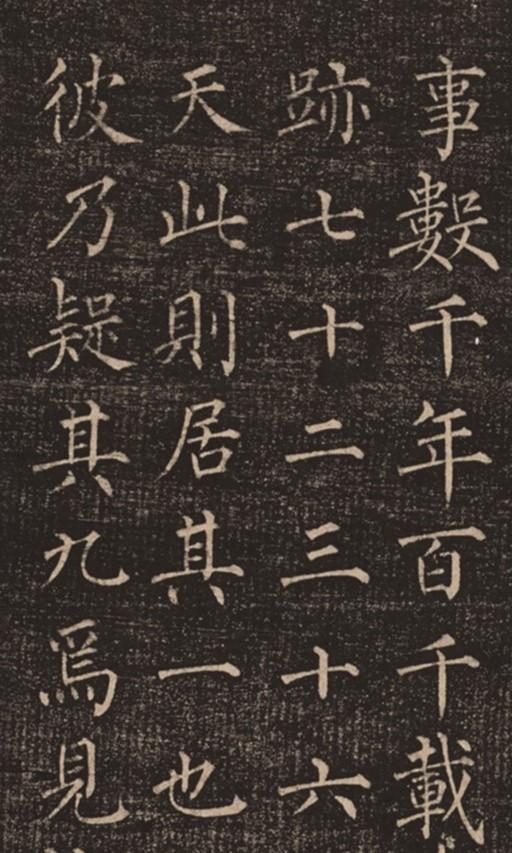 事數千年百千載
跡七十二三十六
天此則居其一也
彼乃疑其九焉見